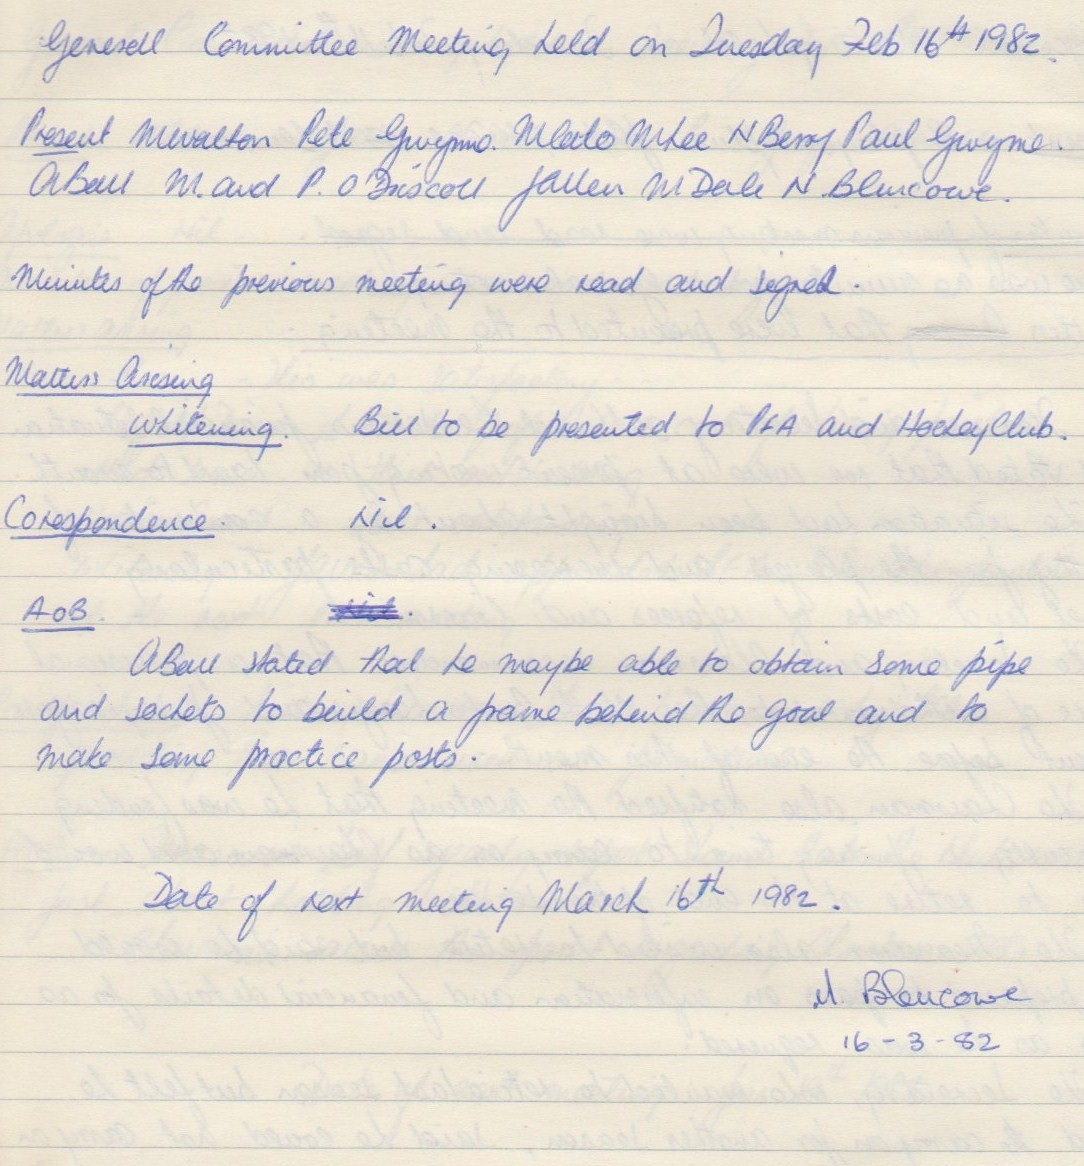 Generall Committee Meeting held on Tuesday Feb 16th 1982.
Present M Walton Pete Gwynne. M Lee N Berry Paul Gwyne.
A Ball M. and P. O'Driscoll J Allen M Dale N. Blencowe.
Minutes of the previous meeting were read and signed.
Matters Arising
Whitening. Bill to be presented to PFA and Hockey Club.
Corespondence. Nil.
AOB Nil.
A Ball stated that he maybe able to obtain some pipe
and sockets to build a frame behind the goal and to
make some practice posts.
Date of next meeting March 16th 1982.
N. Blencowe
16-3-82